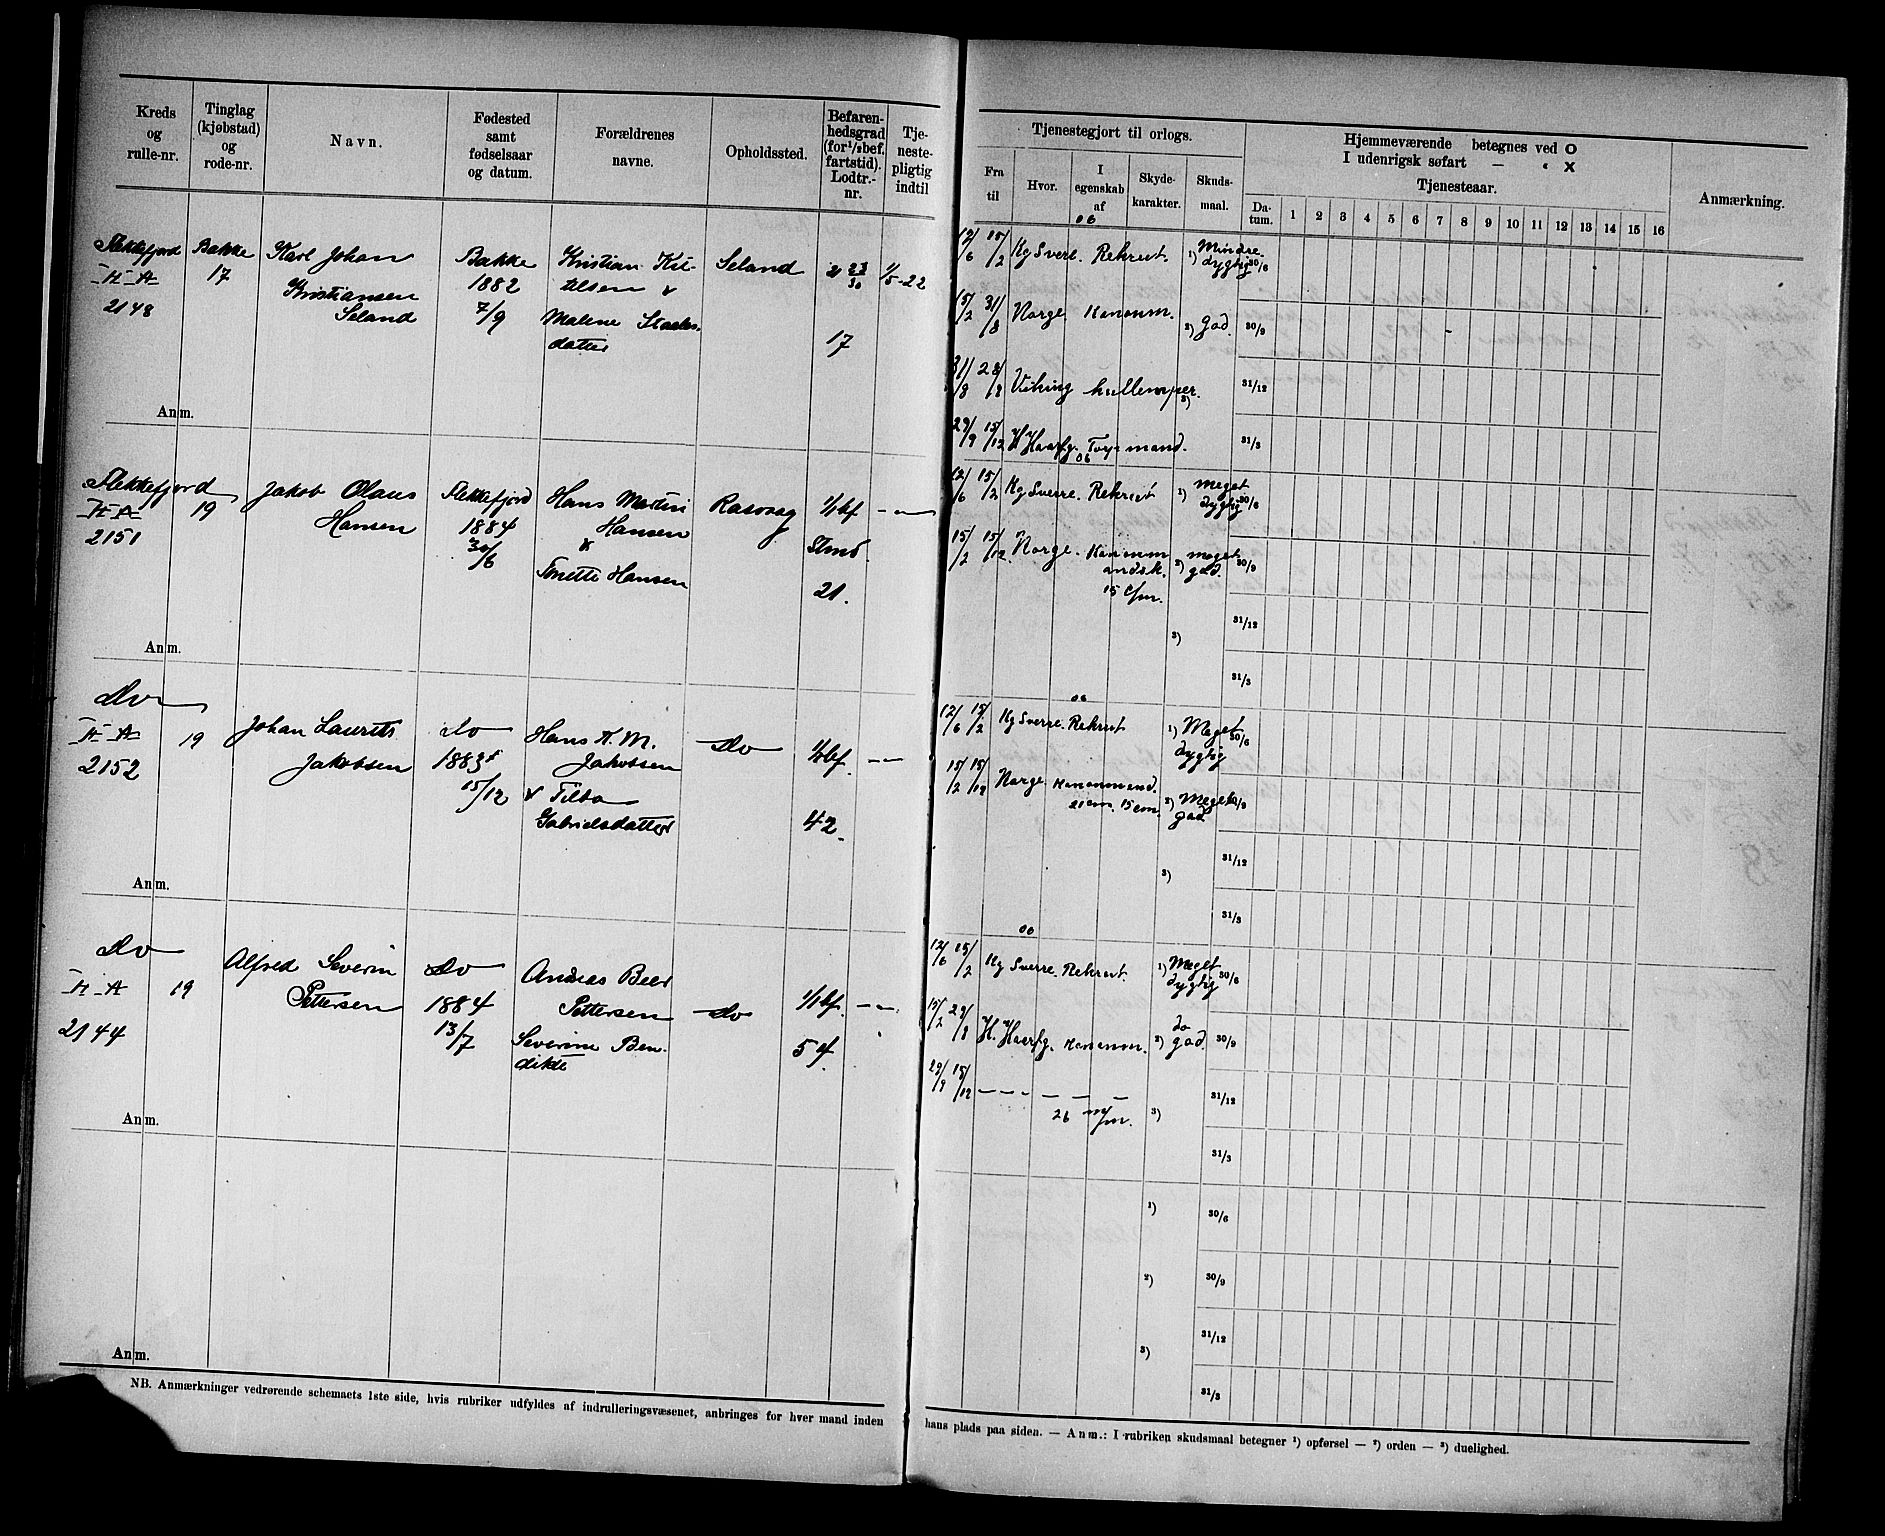 Kreds og rulle-nr.
Tinglag (kjøbstad) og rode-nr.
Navn.
Fødested samt fødselsaar og datum.
Forældrenes navne.
Opholdssted.
Befaren-hedsgrad (for ½ bef. fartstid). Lodtr.-nr.
Tje-neste-pligtig indtil
Tjenestegjort til orlogs.
Fra til
Hvor.
I egenskab af
Skyde-karakter.
Skuds-maal.
Hjemmeværende betegnes ved O
I udenrigsk søfart — „ X
Tjenesteaar.
Da-tum.
1 2 3 4 5 6 7 8 9 10 11 12 13 14 15 16
Anmærkning.
Flekkefjord
II A
2148
Bakke
17
Karl Johan
Kristiansen
Seland
Bakke
1882
7/9
Kristian
Malene
datter
Seland
17
1/5-22
06
12/6 15/2 Kg Sverre. Rekrut.
1) Mindre
dygtig 30/6
15/2 31/8 Norge. Kanonm.
2) God.
30/9
31/8 28/9 Viking kullemper.
3)
31/12
29/9 15/12 H Haarfg. Fyrmand.
31/3
Anm.
Flekkefjord
II A
2151
19
Jakob Olaus
Hansen
Flekkefjord
1884
30/6
Hans Martin
Hansen
&
Tonette Hansen
Rasvaag
1/1 bf
21.
— „ —
06
12/6 15/2 Kg Sverre. Rekrut
1) meget
dygtig 30/6
15/2 15/12 Norge. Kanonm
15 c/m.
2) meget
god.
30/9
31/12
3)
31/3
Anm.
Do
II A
2152
19
Johan Laurits
Jakobsen
do
1883
15/12
Hans K. M.
Jakobsen
& Tilda
Gabrielsdatter
Do
1/2 bf.
42
— „ —
06
12/6 15/2 Kg Sverre. Rekrut
1) Meget
dygtig
30/6
15/2 15/12 Norge Kanonmand.
21 cm. 15 cm.
2) Meget
god
30/9
31/12
3)
31/3
Anm.
Do
II A
2144
19
Alfred Severin
Pettersen
Do
1884
13/7
Andreas Beer
Pettersen
Severine Ben-
dikte
do
1/1 bf.
54.
— „ —
06
12/6 15/2 Kg Sverre. Rekrut.
1) Meget
dygtig
30/6
15/2 29/9 H. Haarfg. Kanonm.
2) do
god.
30/9
29/9 15/12 — — — — — —
26 m/m.
3)
31/12
31/3
Anm.
1)
30/6
2)
30/9
3)
31/12
31/3
Anm.
NB. Anmærkninger vedrørende schemaets 1ste side, hvis rubriker udfyldes af indrulleringsvæsenet, anbringes for hver mand inden hans plads paa siden. — Anm.: I rubriken skudsmaal betegner ¹) opførsel — ²) orden — ³) duelighed.